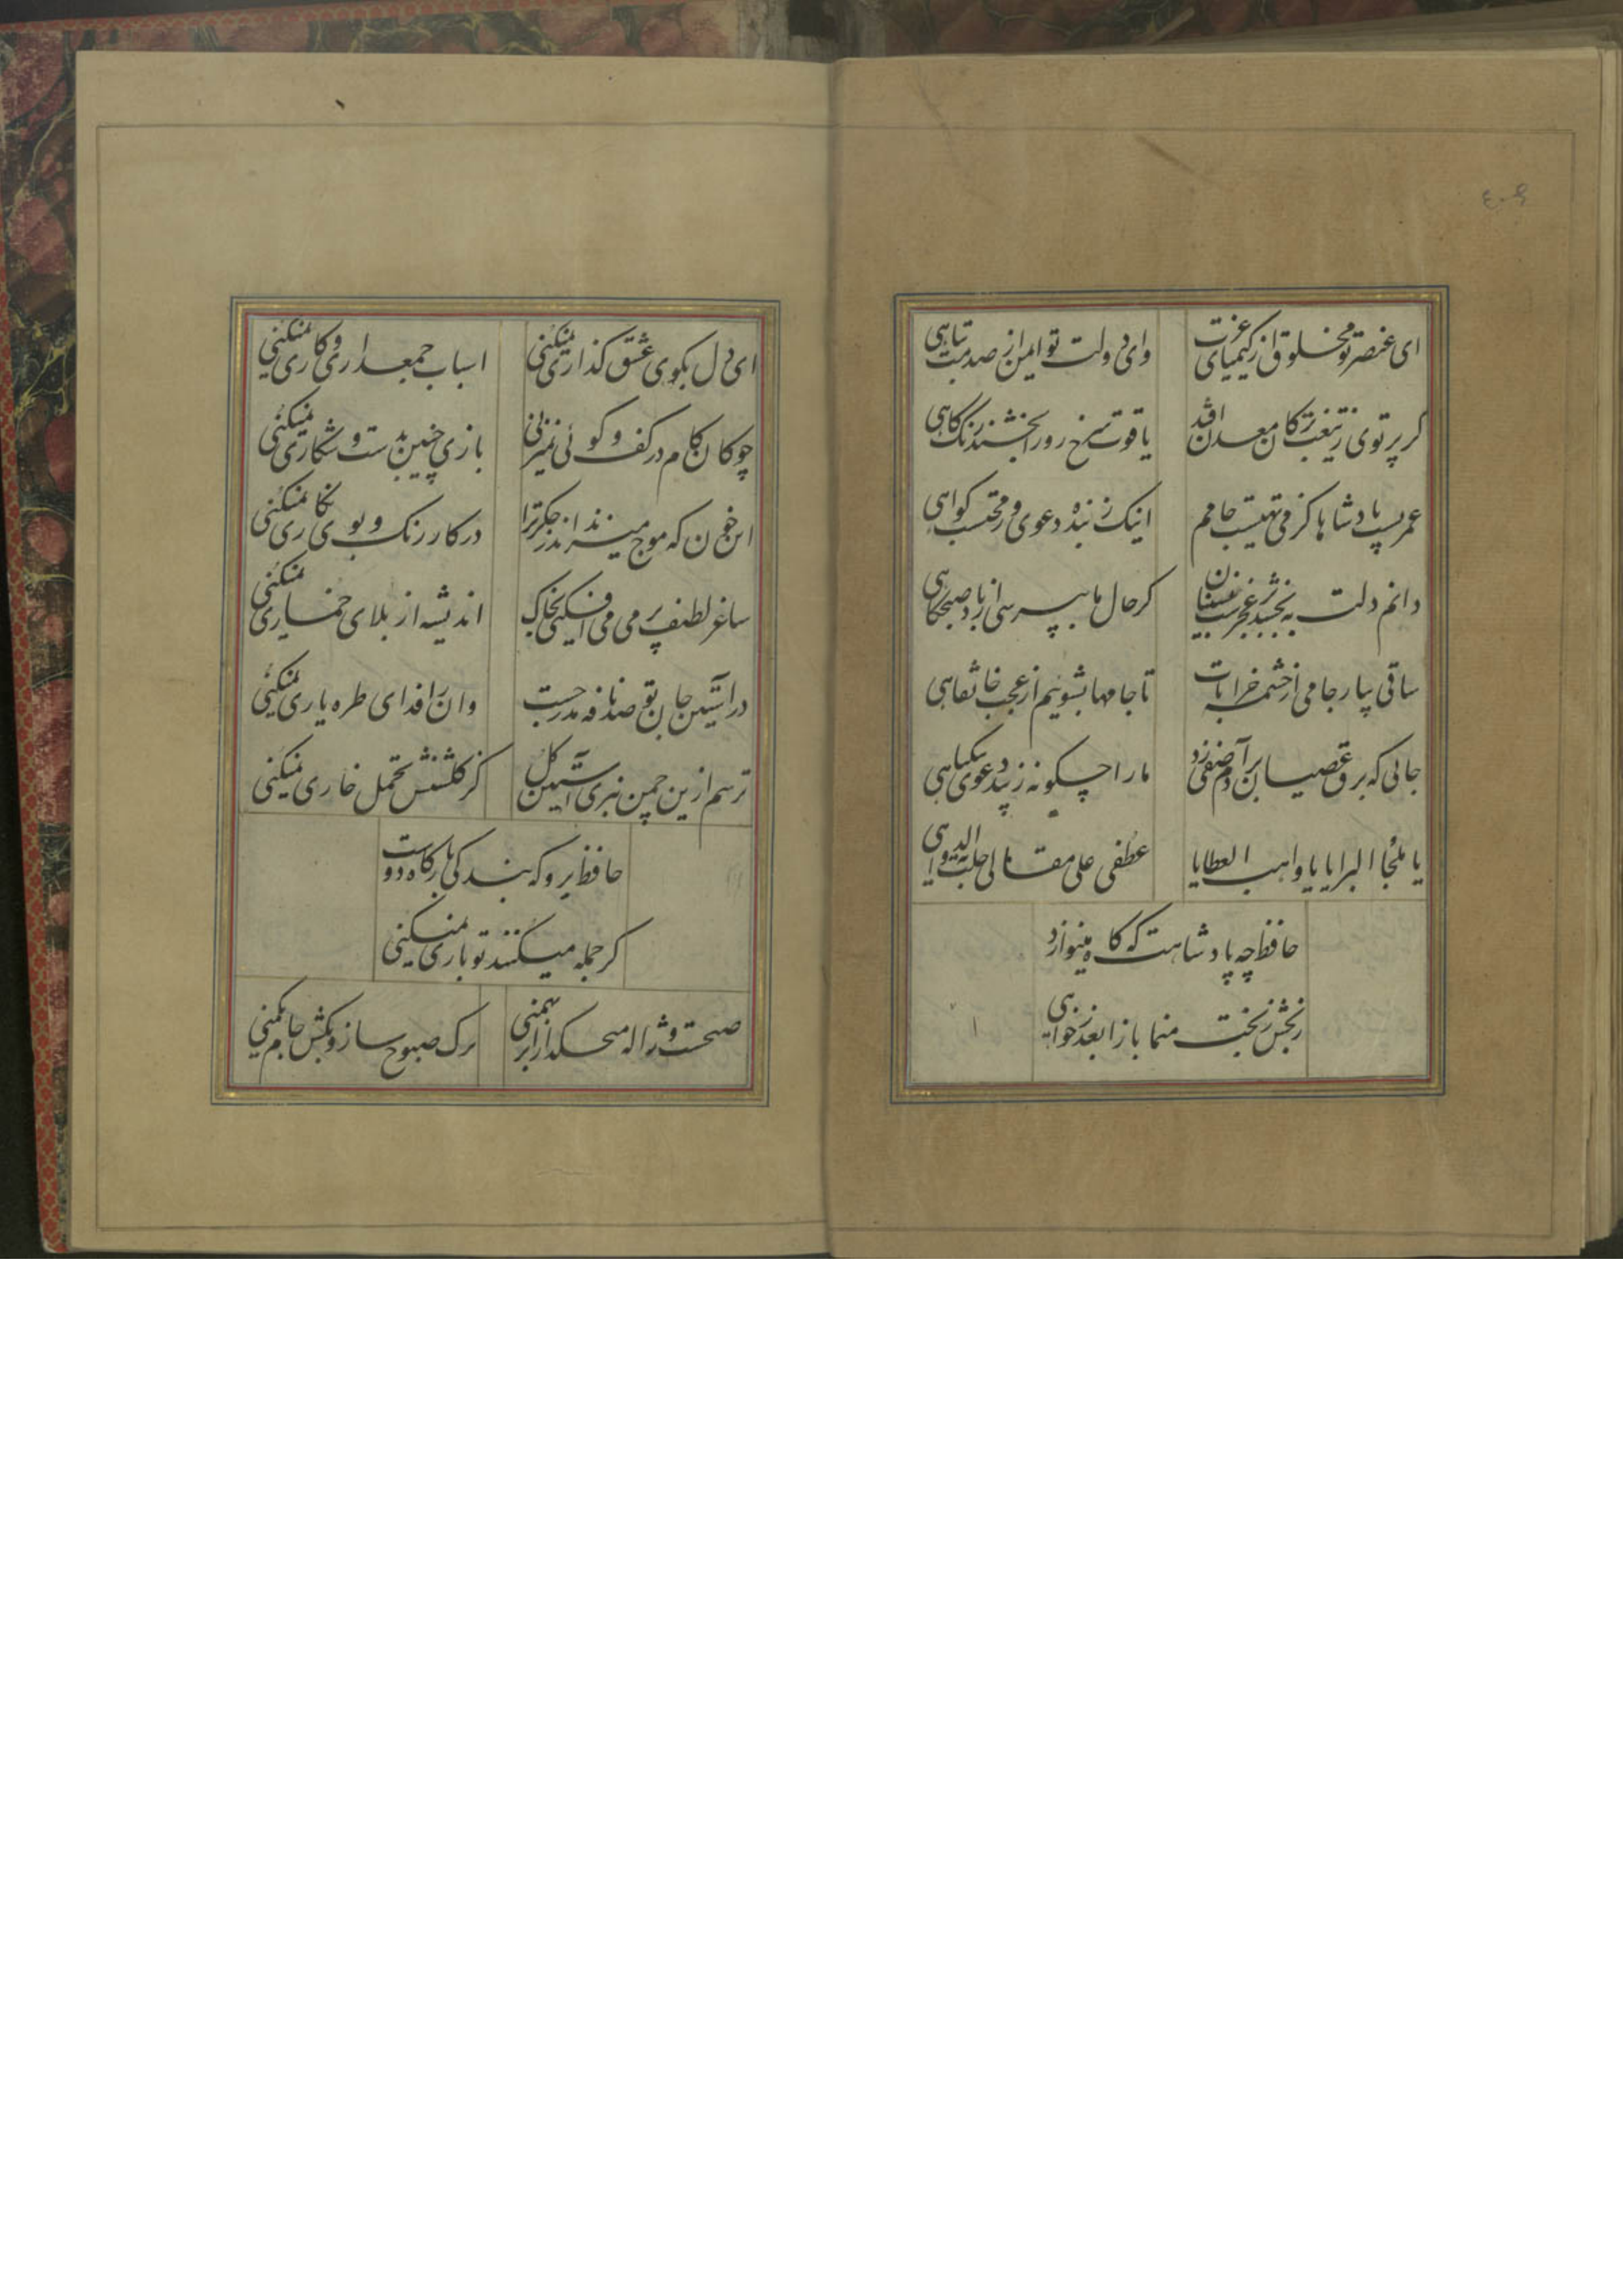 ای عنصر تو مخلوق از کیمیای عزت
وای دولت تو ایمن از صدمت تباهی
گر پرتوی ز تیغت بر کان معدن افتد
یاقوت سرخ رو را بخشند رنگ کاهی
عمریست پادشاها کز می تهیست جامم
اینک ز بنده دعوی وز محتسب گواهی
دانم دلت ببخشد بر عجز شب نشینان
گر حال ما بپرسی از باد صبحگاهی
ساقی بیار جامی از چشمه خرابات
تا جامها بشوئیم از عجب خانقاهی
جائی که برق عصیان بر آدم صفی زد
ما را چگونه زیبد دعوی بیگناهی
یا ملجأ البرایا یا واهب العطایا
عطفی علی مقال احلت به الدواهی
حافظ چه پادشاهت گه گاه مینوازد
رنجش ز بخت منما بازا بعذر خواهی
ای دل بکوی عشق گذاری نمیکنی
اسباب جمع داری و کاری نمیکنی
چوکان کام در کف و گوئی نمیزنی
بازی چنین بدست و شکاری نمیکنی
این خون که موج میزند اندر جگر ترا
در کار رنگ و بوی نگاری نمیکنی
ساغر لطیف پر می و می افکنی بخاک
اندیشه از بلای خماری نمیکنی
در آستین جان تو صد نافه مدرجست
وان را فدای طره یاری نمیکنی
ترسم ازین چمن نبری آستین گل
کز گلشنش تحمل خاری نمیکنی
حافظ برو که بندگی بارگاه دوست
گر جمله میکنند تو باری نمیکنی
صبحست و ژاله میچکد از ابر بهمنی
برگ صبوح ساز و بکش جام یکمنی